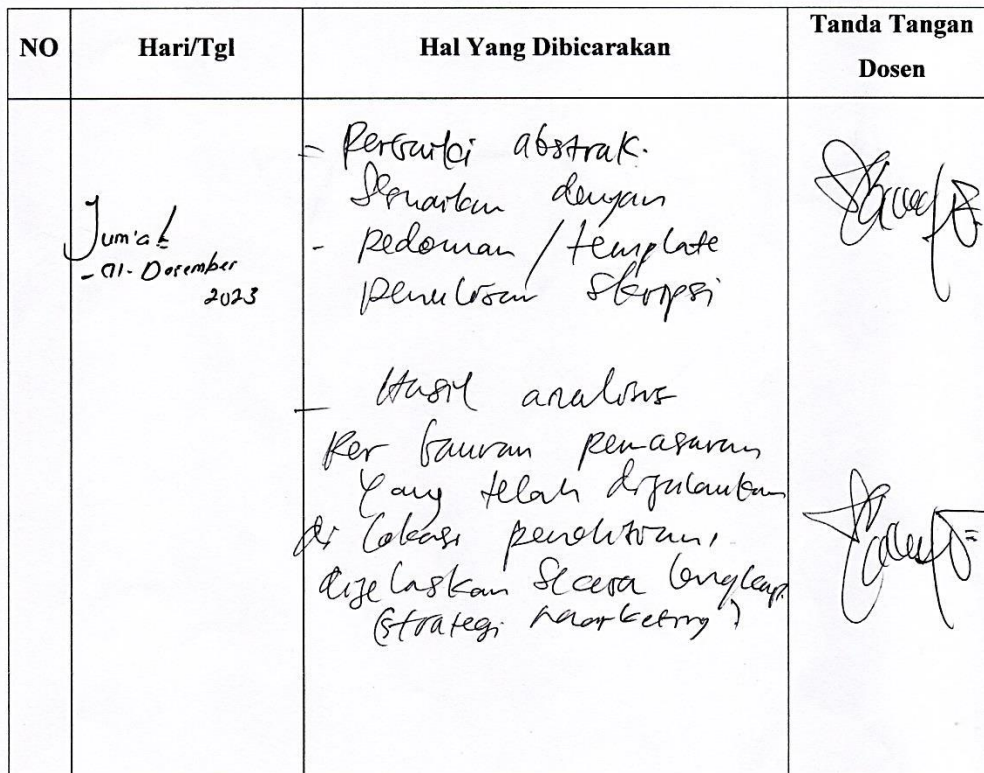 NO
Hari/Tgl
Hal Yang Dibicarakan
Tanda Tangan
Dosen
Jum'at
- 01 - Desember
2023
- Perbaiki abstrak.
Sesuaikan dengan
- pedoman / template
penulisan Skripsi
- Hasil analisis
per bauran pemasaran
yang telah dijalankan
di lokasi penelitian,
dijelaskan secara lengkap.
(strategi marketing)